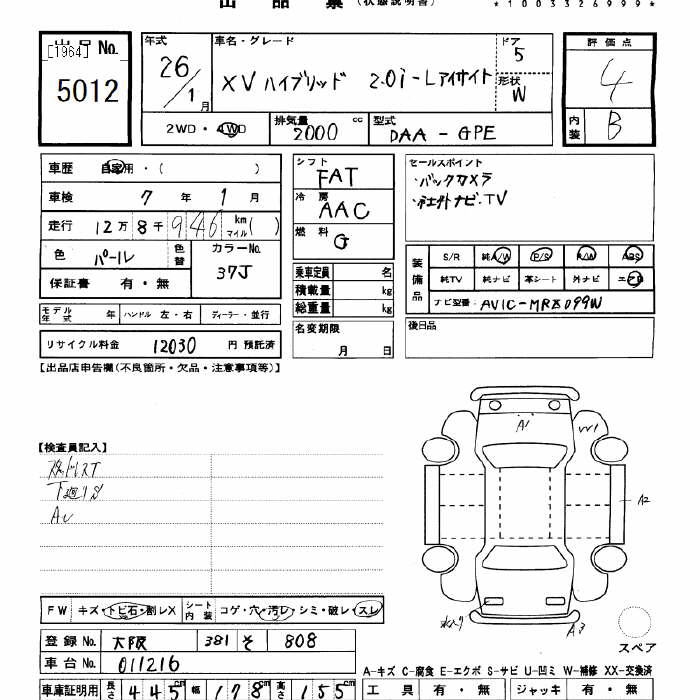 出品票 (状態説明書)
*1003326999*
出品No.
[1964]
5012
年式
26/1月
車名・グレード
XV ハイブリッド 2.0i-Lアイサイト
ドア
5
形状
W
評価点
4
内装
B
2WD・4WD
排気量
2000 cc
型式
DAA - GPE
車歴 自家用・( )
車検 7年 1月
走行 12万8千946 km マイル( )
色 パール 色替
カラーNo.
37J
保証書 有・無
シフト
FAT
冷房
AAC
燃料
G
乗車定員 名
積載量 kg
総重量 kg
名変期限
月 日
セールスポイント
・バックカメラ
・社外ナビ.TV
装備品
S/R 純A/W P/S P/W ABS
純TV 純ナビ 革シート 外ナビ エアB
ナビ型番: AVIC-MRZ099W
後日品
モデル年式 年 ハンドル 左・右 ディーラー・並行
リサイクル料金 12030 円 預託済
【出品店申告欄(不良箇所・欠品・注意事項等)】
【検査員記入】
下廻りS
A1
W1
A2
A3
スペア
FW キズ・トビ石・割レX
シート内装 コゲ・穴・汚レ・シミ・破レ・スレ
登録No. 大阪 381 そ 808
車台No. 011216
A-キズ C-腐食 E-エクボ S-サビ U-凹ミ W-補修 XX-交換済
車庫証明用 長さ 445cm 幅 178cm 高さ 155cm
工具 有・無 ジャッキ 有・無